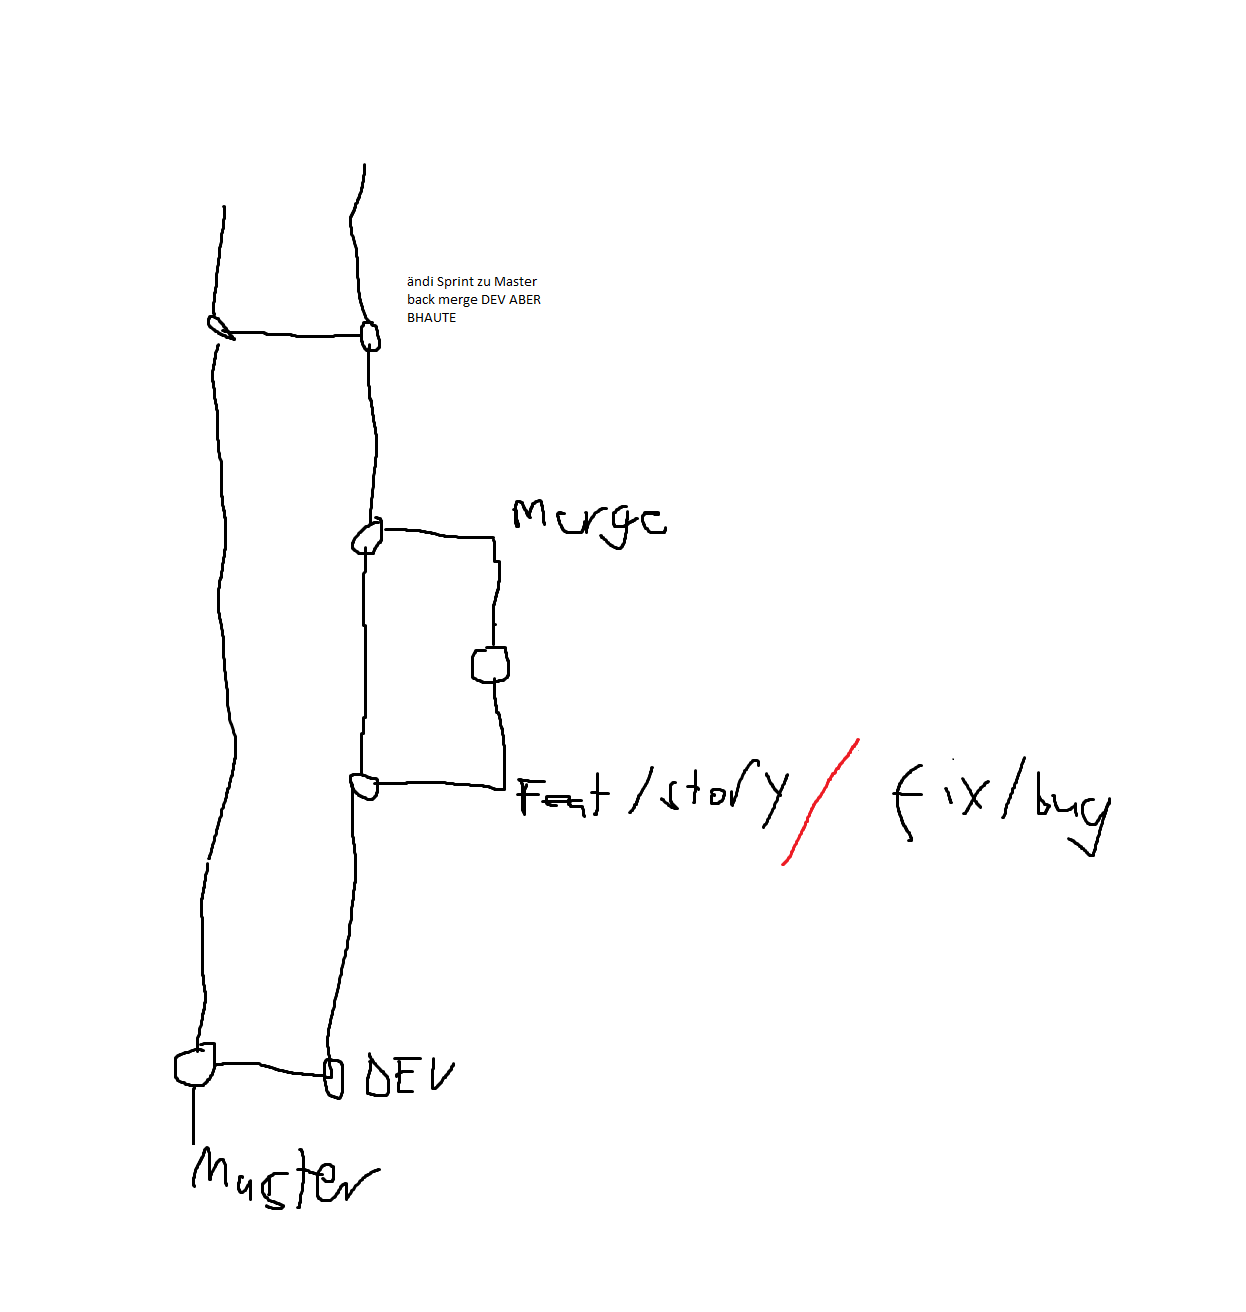 ändi Sprint zu Master
back merge DEV ABER
BHAUTE
Merge
Feat/story / fix/bug
DEV
Master